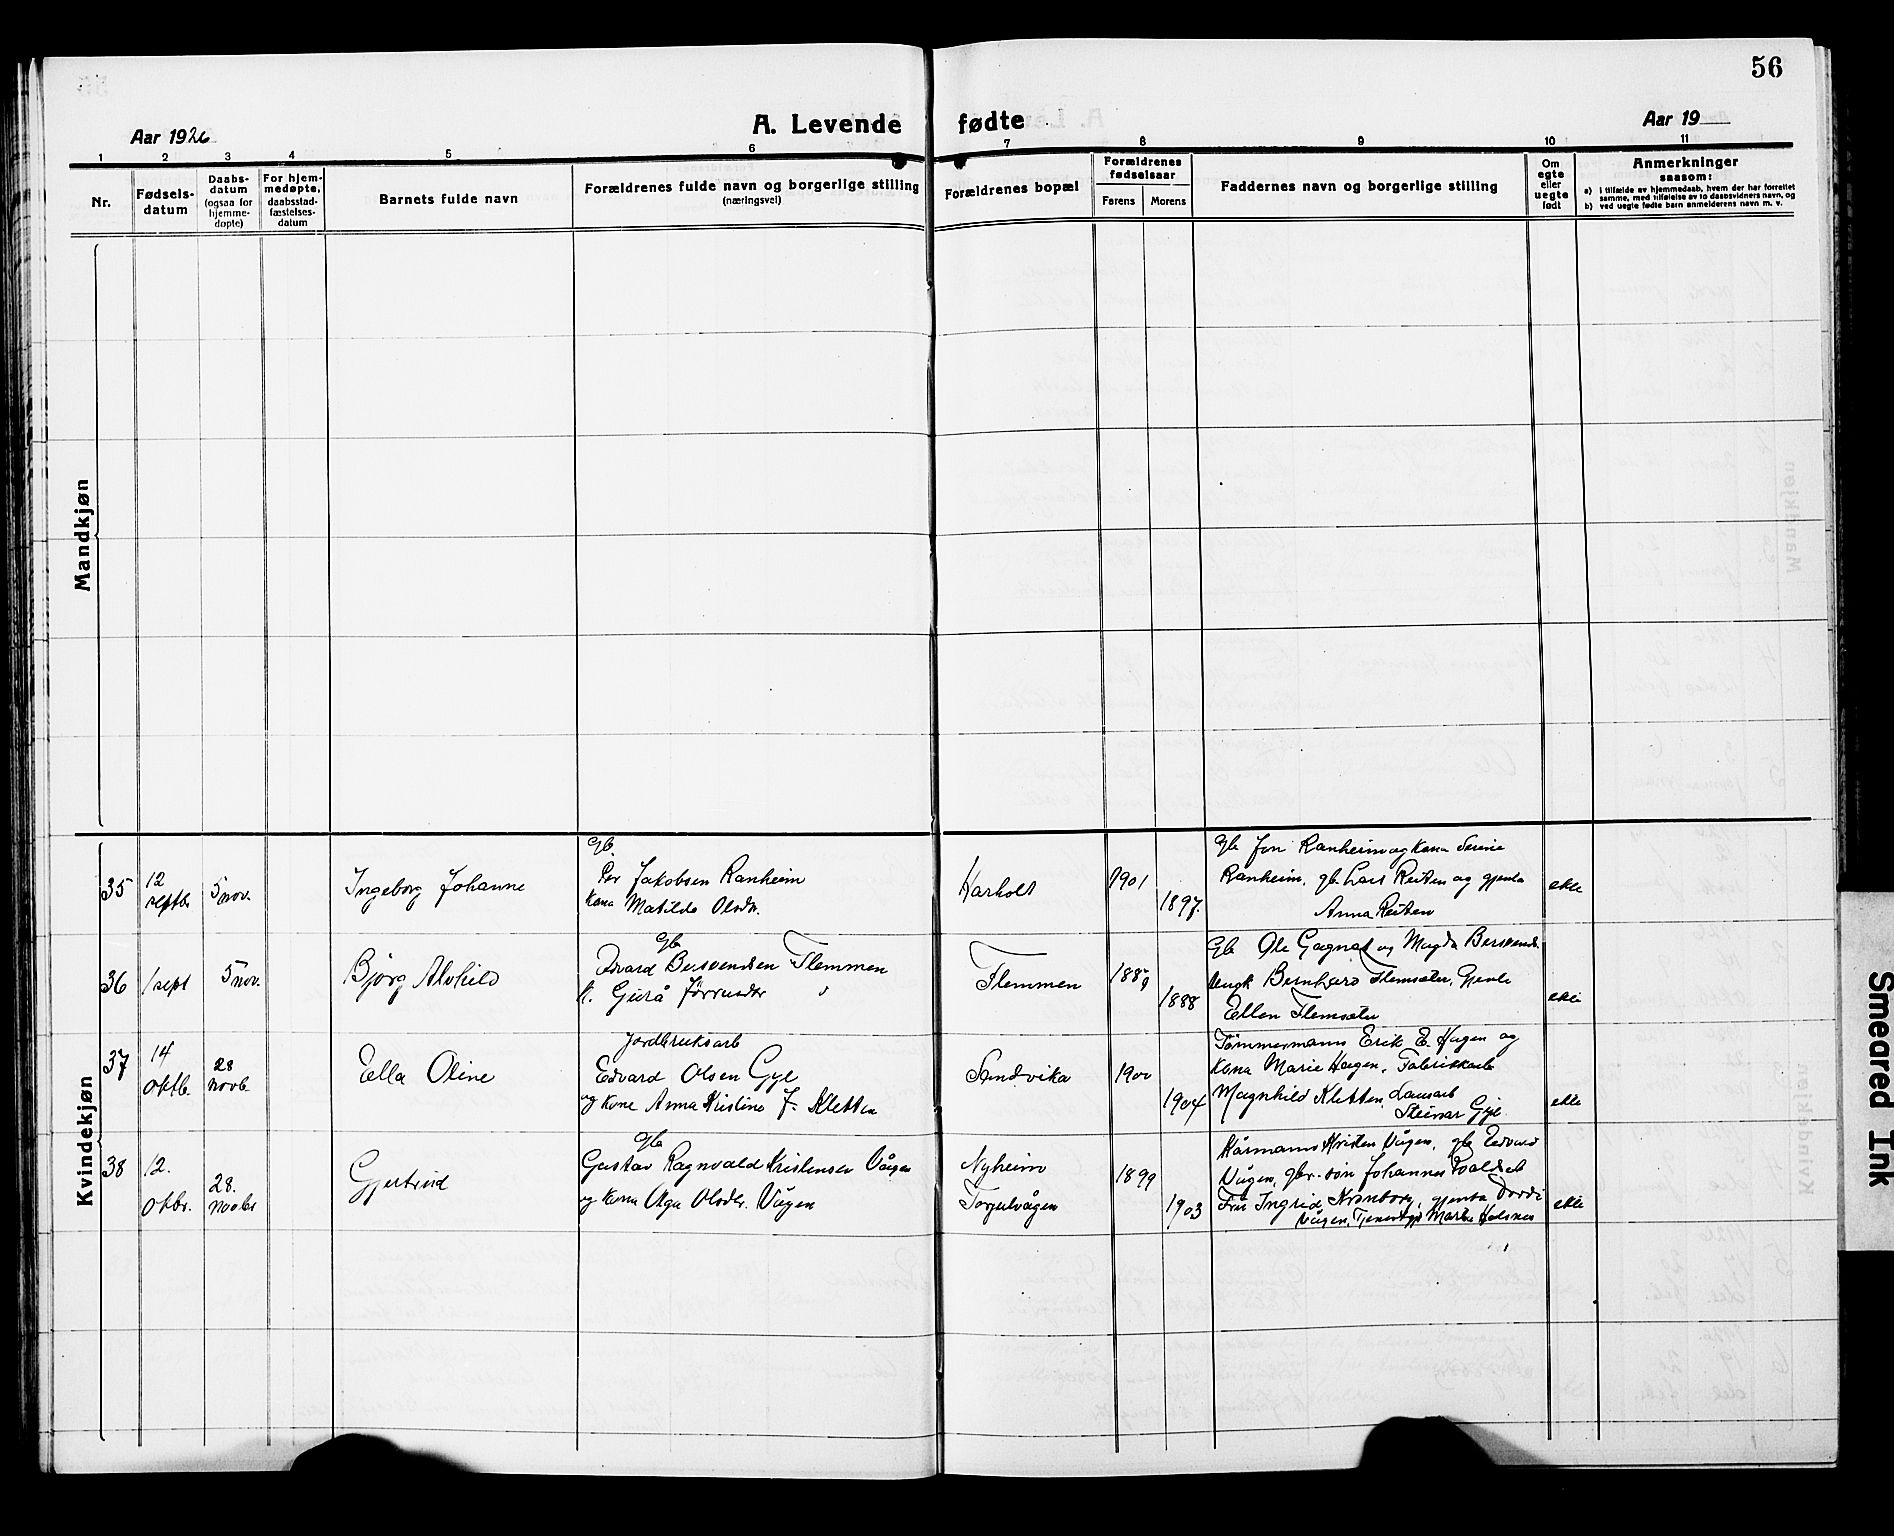 56
Aar 1926
A. Levende fødte
Aar 19
1 2 3 4 5 6 7 8 9 10 11
Nr.
Fødsels-
datum
Daabs-
datum
(ogsaa for
hjemme-
døpte)
For hjem-
medøpte,
daabsstad-
fæstelses-
datum
Barnets fulde navn
Forældrenes fulde navn og borgerlige stilling
(næringsvei)
Forældrenes bopæl
Forældrenes
fødselsaar
Farens Morens
Faddernes navn og borgerlige stilling
Om
egte
eller
uegte
født
Anmerkninger
saasom:
a) i tilfælde av hjemmedaab, hvem der har forrettet
samme, med tilføielse av to daabsvidners navn, og
b) ved uegte fødte barn anmelderens navn m. v.
Mandkjøn
Kvindekjøn
35
12
septbr
5 nov.
Ingeborg Johanne
Gb.
Per Jakobsen Ranheim
Kona Matilde Olsdtr.
Karholt
1901
1897.
Gb Jon Ranheim og Kona Serine
Ranheim, gb. Lars Reiten og gjenta
Anna Reiten
ekte
36
1 sept
5 nov.
Björg Alvhild
Gb
Edvard Bersvendsen Flemmen
k. Gurå
Flemmen
1889
1888
Gb Ole Gagnat og Magda Bersvends
Ungk Bernhard Flemsæter, Gjente
Ellen Flemsæter
ekte
37
14
oktbr
28
novbr
Ella Oline
Jordbruksarb
Edvard Olsen Gyl
og kone Anna Kristine J. Kletten
Sandvika
1900
1904
Tömmermann Erik E. Hagen og
Kona Marie Hagen, Fabrikkarb
Magnhild Kletten, Lausarb
Steinar Gyl
ekte
38
12.
oktbr.
28.
novbr
Gjertrud
Gb
Gustav Ragnvald Kristensen Vågen
og kona Olga Olsdtr. Vågen
Nyheim
Torjulvågen
1899
1903
Kårmann Kristen Vågen, gb Edvard
Vågen, gbr.-søn Johannes
Fru Ingrid Kronborg, gjenta Dordi
Vågen, Tjenestgj Marta Halsnes
ekte
Smeared Ink